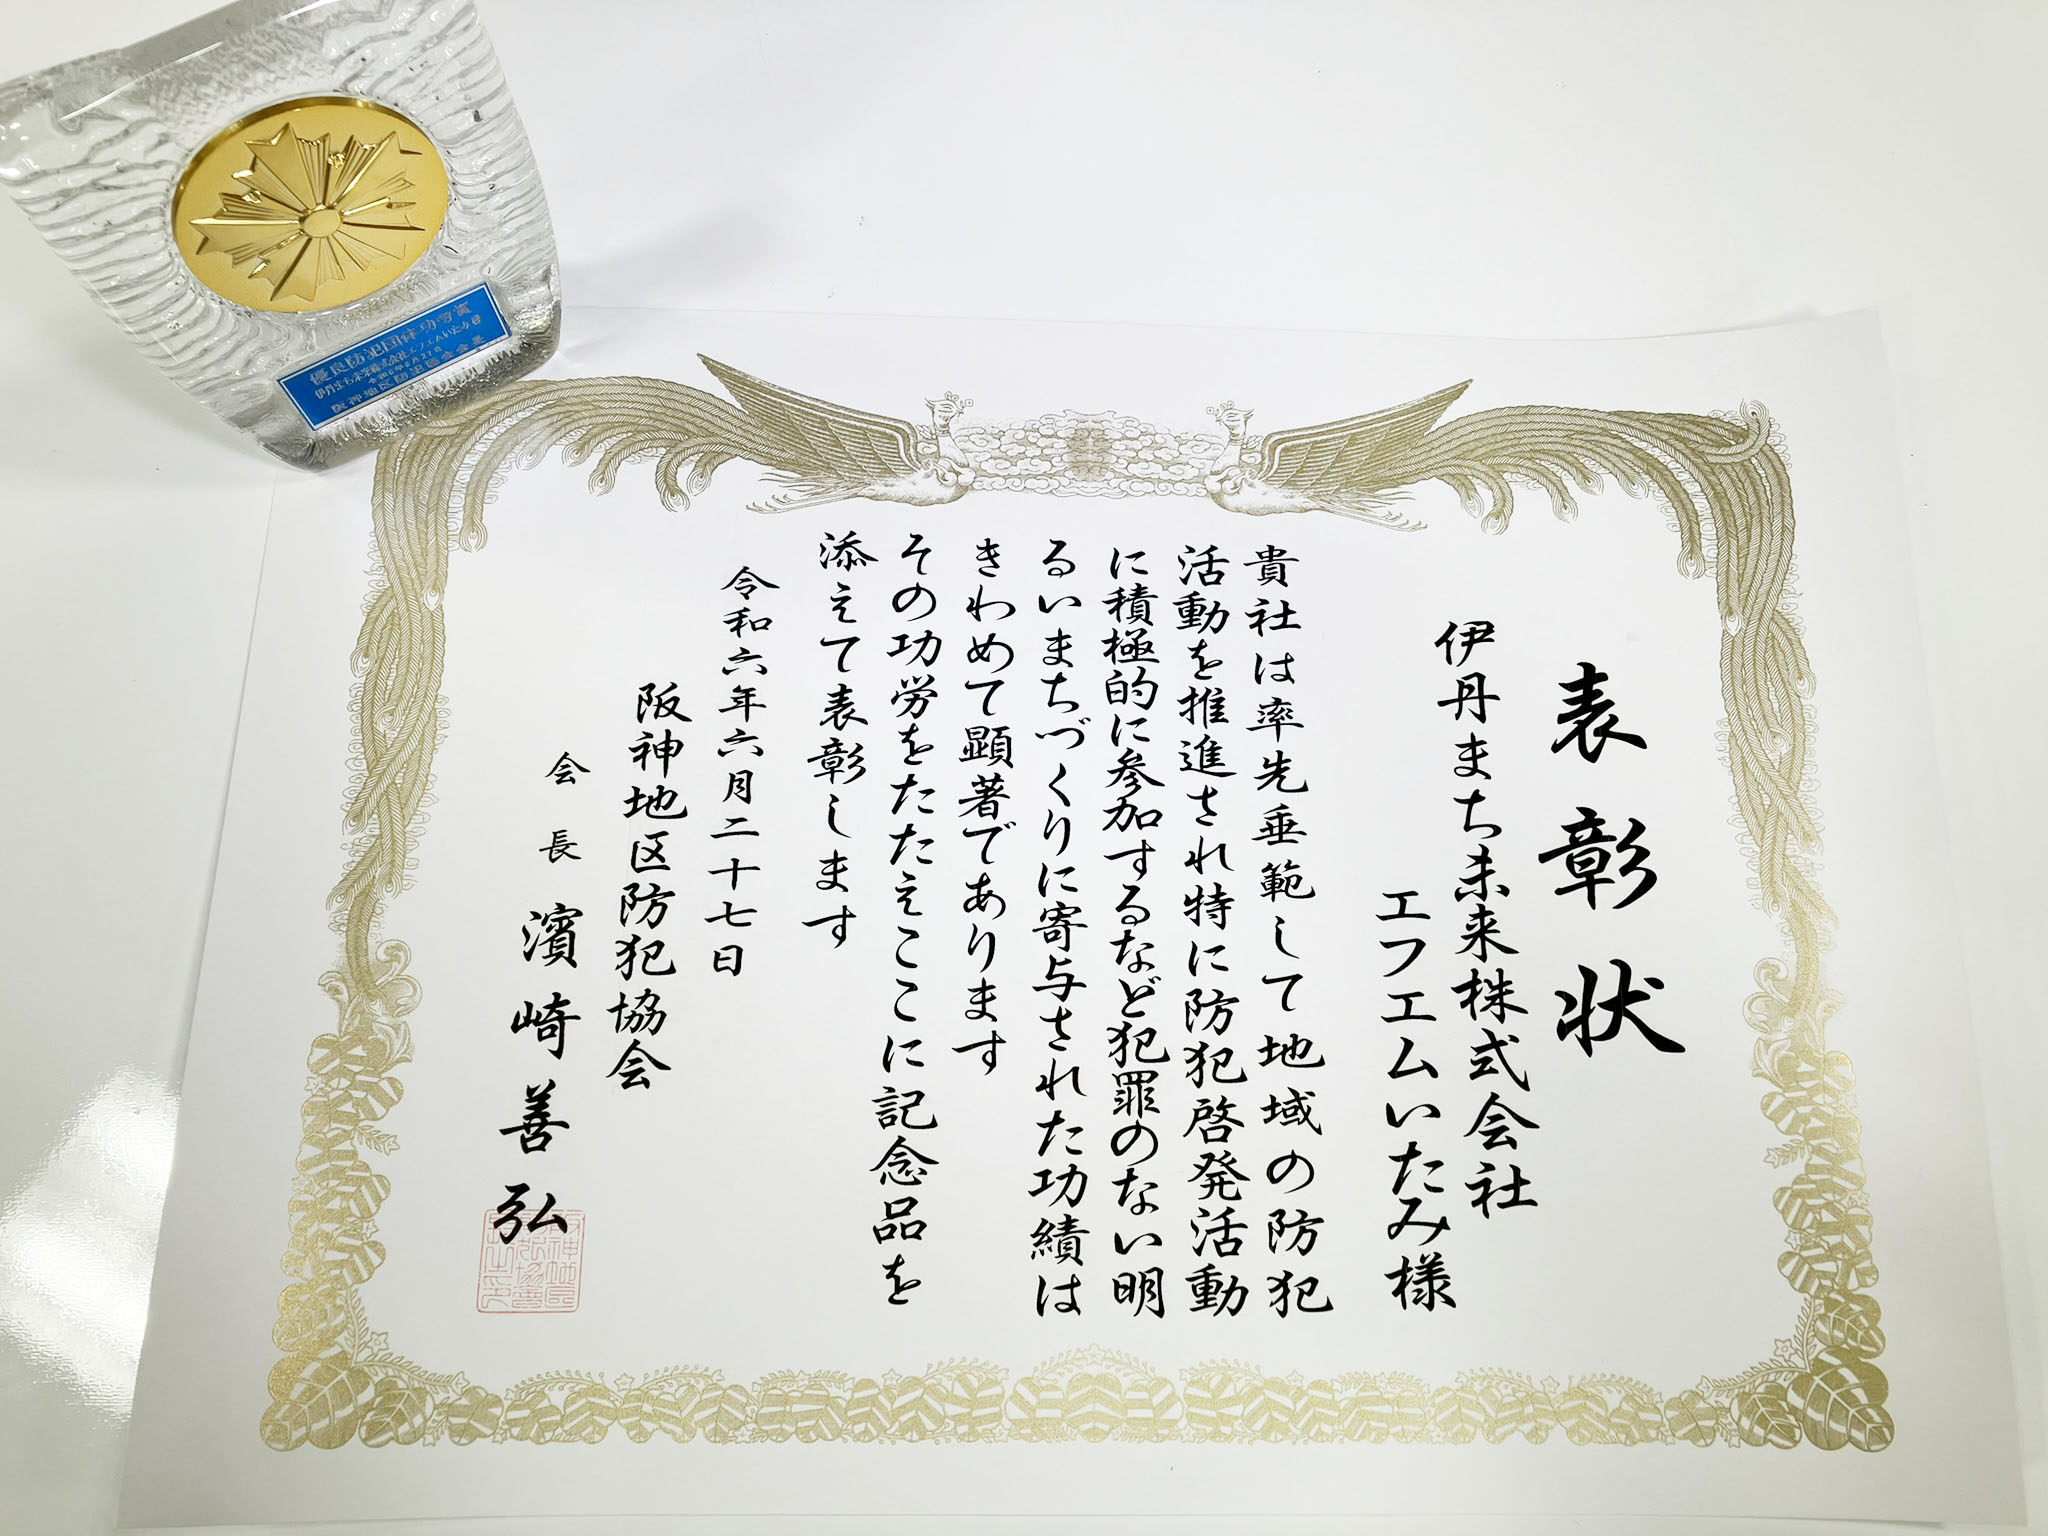 表彰状
伊丹まち未来株式会社
エフエムいたみ様
貴社は率先垂範して地域の防犯
活動を推進され特に防犯啓発活動
に積極的に参加するなど犯罪のない明
るいまちづくりに寄与された功績は
きわめて顕著であります
その功労をたたえここに記念品を
添えて表彰します
令和六年六月二十七日
阪神地区防犯協会
会長 濱崎善弘
優良防犯団体功労賞
伊丹まち未来株式会社エフエムいたみ様
令和6年6月27日
阪神地区防犯協会会長